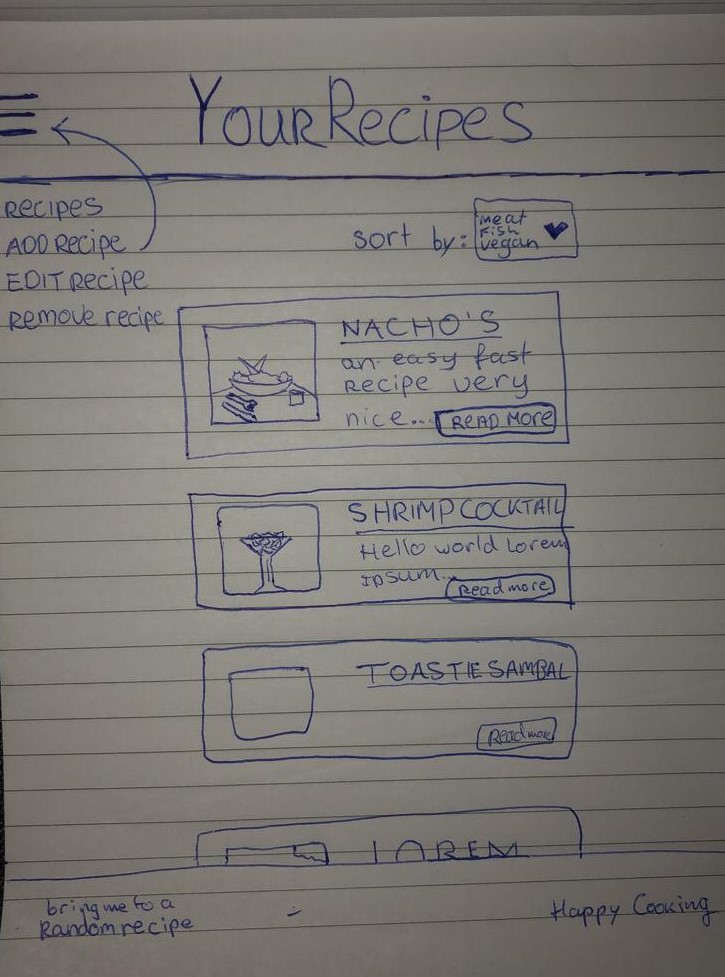 YourRecipes
Recipes
ADD Recipe
EDIT Recipe
Remove recipe
sort by:
meat
Fish
vegan
NACHO'S
an easy fast
Recipe very
nice...
READ MORE
SHRIMP COCKTAIL
Hello world Lorem
Ipsum...
Readmore
TOASTIE SAMBAL
Readmore
LOREM
bring me to a
Random recipe
Happy Cooking